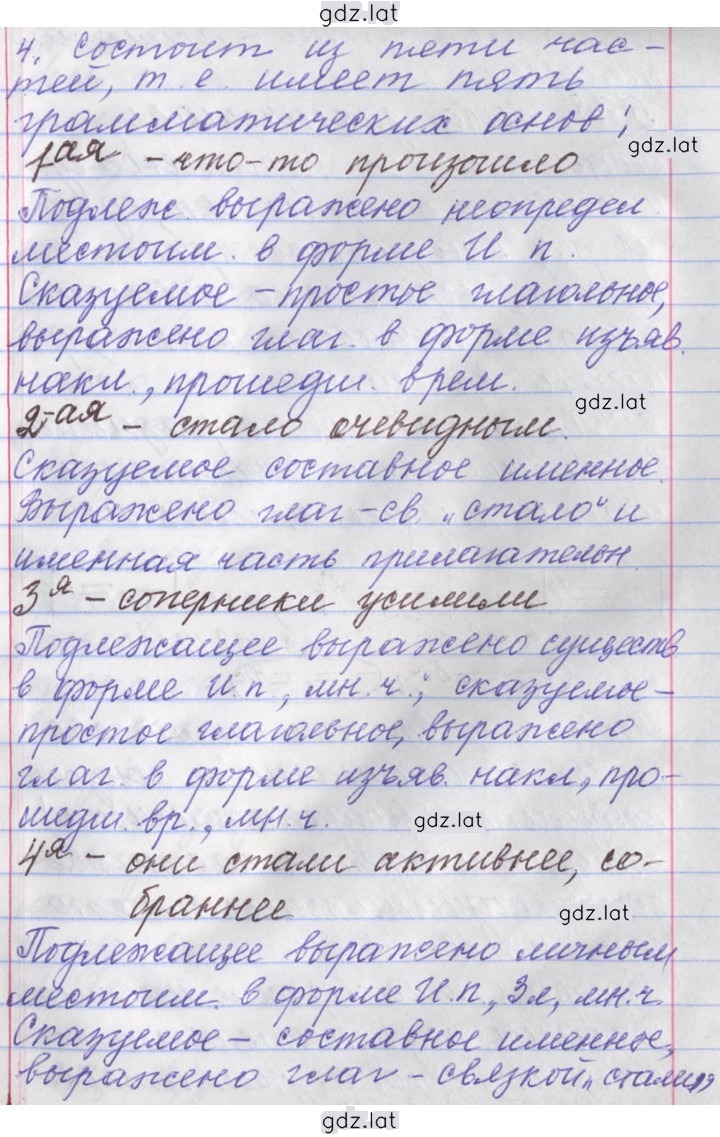 gdz.lat
4. Состоит из пяти час-
тей, т. е. имеет пять
грамматических основ;
gdz.lat
1ая - что-то произошло
Подлеж. выражено неопредел.
местоим. в форме И. п.
Сказуемое - простое глагольное,
выражено глаг. в форме изъяв.
накл., прошедш. врем.
gdz.lat
2-ая - стало очевидным.
Сказуемое составное именное.
Выражено глаг-св. „стало" и
именная часть прилагательн.
3я - соперники усилили
Подлежащее выражено существ
в форме И.п., мн.ч.; сказуемое-
простое глагольное, выражено
глаг. в форме изъяв. накл., про-
шедш. вр., мн.ч.
gdz.lat
4я - они стали активнее, со-
браннее
gdz.lat
Подлежащее выражено личным
местоим. в форме И.п., 3л., мн.ч
Сказуемое - составное именное,
выражено глаг - связкой „стали"
gdz.lat